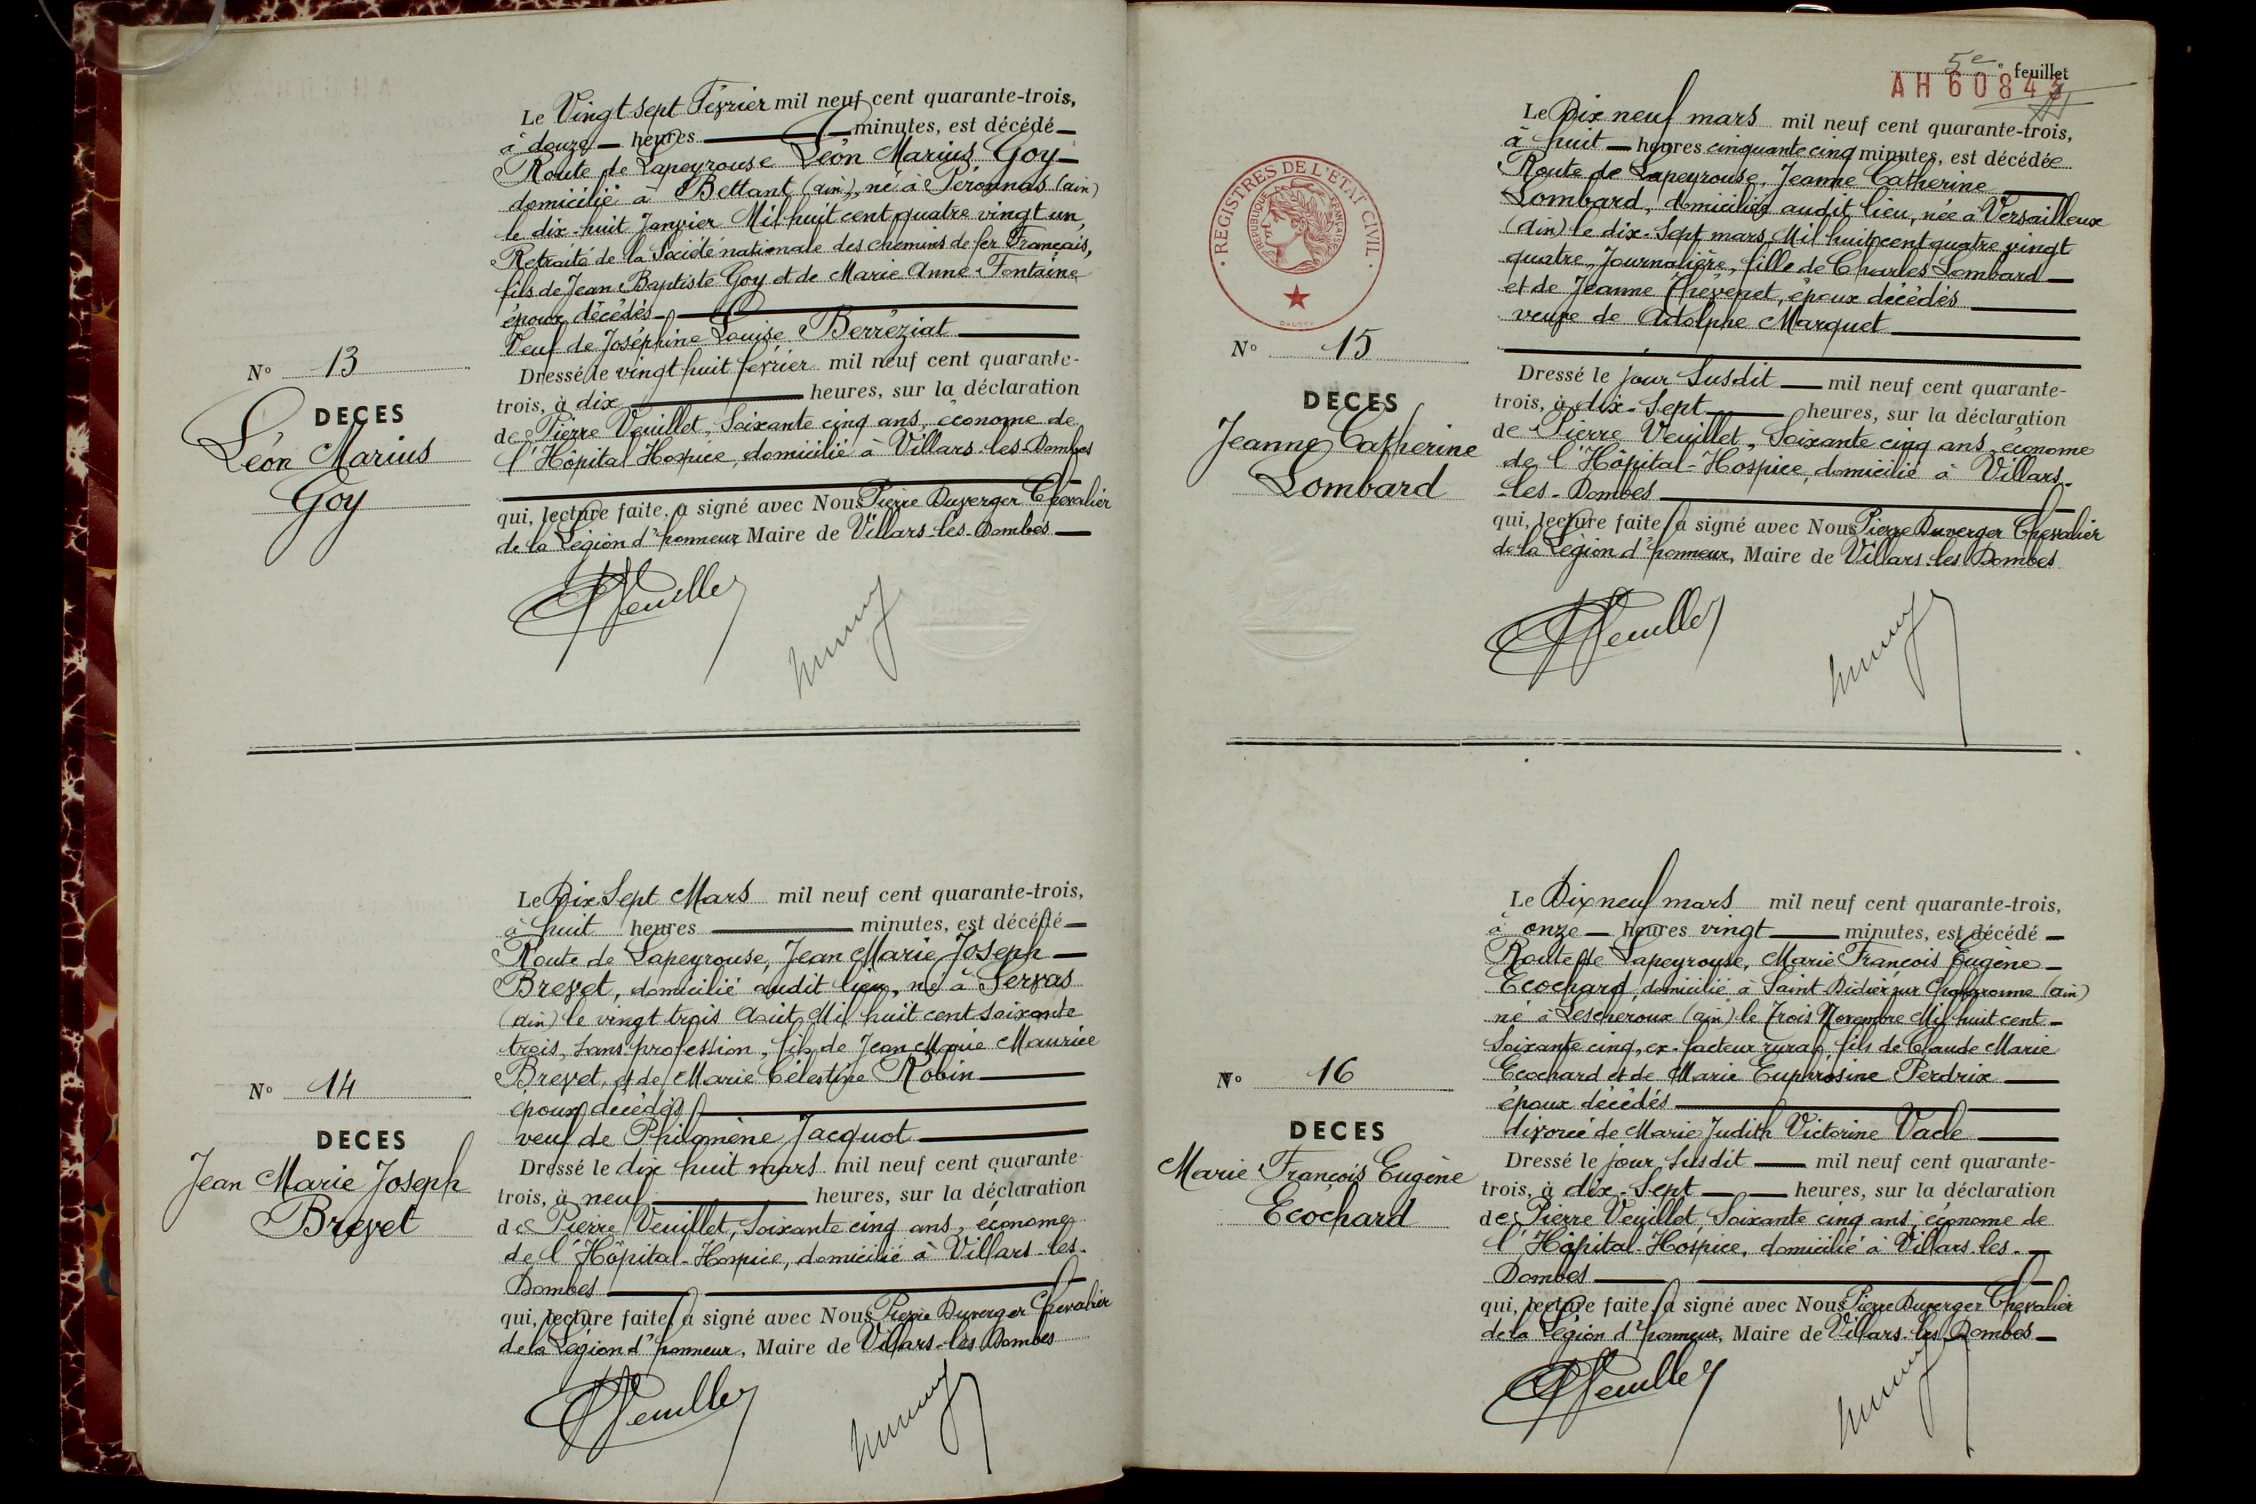 Le Vingt sept Février mil neuf cent quarante-trois,
à douze heures minutes, est décédé
Route de Lapeyrouse Léon Marius Goy
domicilié à Bettant (ain), né à Péronnas (ain)
le dix-huit Janvier Mil huit cent quatre vingt un,
Retraité de la Société nationale des chemins de fer Français,
fils de Jean Baptiste Goy et de Marie Anne Fontaine
époux décédés
Veuf de Joséphine Louise Berréziat
Dressé le vingt huit février mil neuf cent quarante-
trois, à dix heures, sur la déclaration
de Pierre Veuillet, Soixante cinq ans, économe de
l'Hôpital Hospice, domicilié à Villars-les-Dombes
qui, lecture faite, a signé avec Nous Pierre Duverger Chevalier
de la Légion d'honneur Maire de Villars-les-Dombes
N° 13
DECES
Léon Marius
Goy
PVeuillet
Le Dix Sept Mars mil neuf cent quarante-trois,
à huit heures minutes, est décédé
Route de Lapeyrouse, Jean Marie Joseph
Brevet, domicilié audit lieu, né à Servas
(ain) le vingt trois Août Mil huit cent soixante
trois, sans profession, fils de Jean Marie Maurice
Brevet, et de Marie Célestine Robin
époux décédés
veuf de Philomène Jacquot
Dressé le dix huit mars mil neuf cent quarante-
trois, à neuf heures, sur la déclaration
de Pierre Veuillet, Soixante cinq ans, économe
de l'Hôpital-Hospice, domicilié à Villars-les-
Dombes
qui, lecture faite, a signé avec Nous Pierre Duverger Chevalier
de la Légion d'honneur, Maire de Villars-les-Dombes
N° 14
DECES
Jean Marie Joseph
Brevet
PVeuillet
5e feuillet
AH 60843
REGISTRES DE L'ETAT CIVIL
REPUBLIQUE FRANÇAISE
Le Dix neuf mars mil neuf cent quarante-trois,
à huit heures cinquante cinq minutes, est décédée
Route de Lapeyrouse, Jeanne Catherine
Lombard, domiciliée audit lieu, née à Versailleux
(Ain) le dix-Sept mars Mil huit cent quatre vingt
quatre, Journalière, fille de Charles Lombard
et de Jeanne Thévenet, époux décédés
veuve de Adolphe Marquet
Dressé le jour Susdit mil neuf cent quarante-
trois, à dix-Sept heures, sur la déclaration
de Pierre Veuillet, Soixante cinq ans, économe
de l'Hôpital-Hospice, domicilié à Villars-
-les-Dombes
qui, lecture faite, a signé avec Nous Pierre Duverger Chevalier
de la Légion d'honneur, Maire de Villars-les Dombes
N° 15
DECES
Jeanne Catherine
Lombard
PVeuillet
Le Dix neuf mars mil neuf cent quarante-trois,
à onze heures vingt minutes, est décédé
Route de Lapeyrouse, Marie François Eugène
Ecochard, domicilié à Saint Didier sur Chalaronne (ain)
né à Lescheroux (ain) le Trois Novembre Mil huit cent
Soixante cinq, ex-facteur rural, fils de Claude Marie
Ecochard et de Marie Euphrosine Perdrix
époux décédés
divorcé de Marie Judith Victorine Vade
Dressé le jour Susdit mil neuf cent quarante-
trois, à dix-Sept heures, sur la déclaration
de Pierre Veuillet, Soixante cinq ans, économe de
l'Hôpital-Hospice, domicilié à Villars-les-
Dombes
qui, lecture faite, a signé avec Nous Pierre Duverger Chevalier
de la Légion d'honneur, Maire de Villars-les-Dombes
N° 16
DECES
Marie François Eugène
Ecochard
PVeuillet